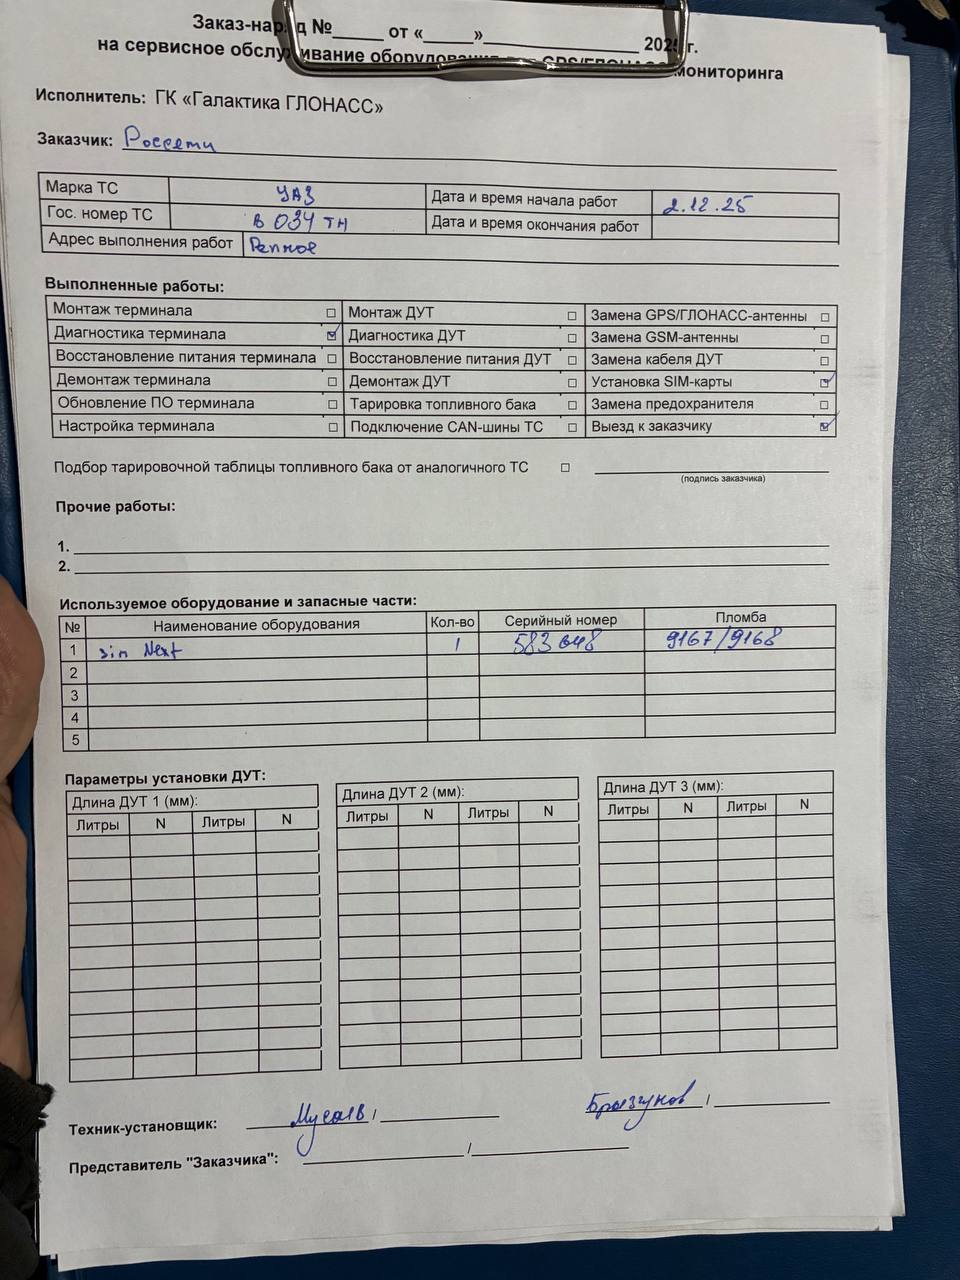 Заказ-наряд №_____ от «_____»________________ 2025 г.
на сервисное обслуживание оборудования GPS/ГЛОНАСС мониторинга
Исполнитель: ГК «Галактика ГЛОНАСС»
Заказчик: Россети
Марка ТС УАЗ Дата и время начала работ 2.12.25
Гос. номер ТС В 034 ТН Дата и время окончания работ
Адрес выполнения работ Репное
Выполненные работы:
Монтаж терминала ☐ Монтаж ДУТ ☐ Замена GPS/ГЛОНАСС-антенны ☐
Диагностика терминала ☑ Диагностика ДУТ ☐ Замена GSM-антенны ☐
Восстановление питания терминала ☐ Восстановление питания ДУТ ☐ Замена кабеля ДУТ ☐
Демонтаж терминала ☐ Демонтаж ДУТ ☐ Установка SIM-карты ☑
Обновление ПО терминала ☐ Тарировка топливного бака ☐ Замена предохранителя ☐
Настройка терминала ☐ Подключение CAN-шины ТС ☐ Выезд к заказчику ☑
Подбор тарировочной таблицы топливного бака от аналогичного ТС ☐
(подпись заказчика)
Прочие работы:
1.
2.
Используемое оборудование и запасные части:
№ Наименование оборудования Кол-во Серийный номер Пломба
1 sim Next 1 583648 9167/9168
2
3
4
5
Параметры установки ДУТ:
Длина ДУТ 1 (мм): Длина ДУТ 2 (мм): Длина ДУТ 3 (мм):
Литры N Литры N Литры N Литры N Литры N Литры N
Техник-установщик: Мусаев / Брызгунов /
Представитель "Заказчика": /